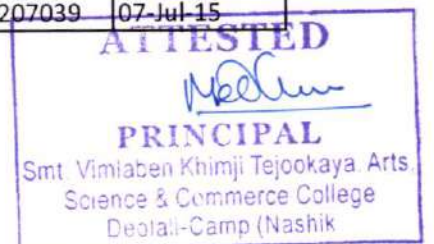 207039 07-Jul-15
ATTESTED
PRINCIPAL
Smt. Vimlaben Khimji Tejookaya. Arts,
Science & Commerce College
Deolali-Camp (Nashik